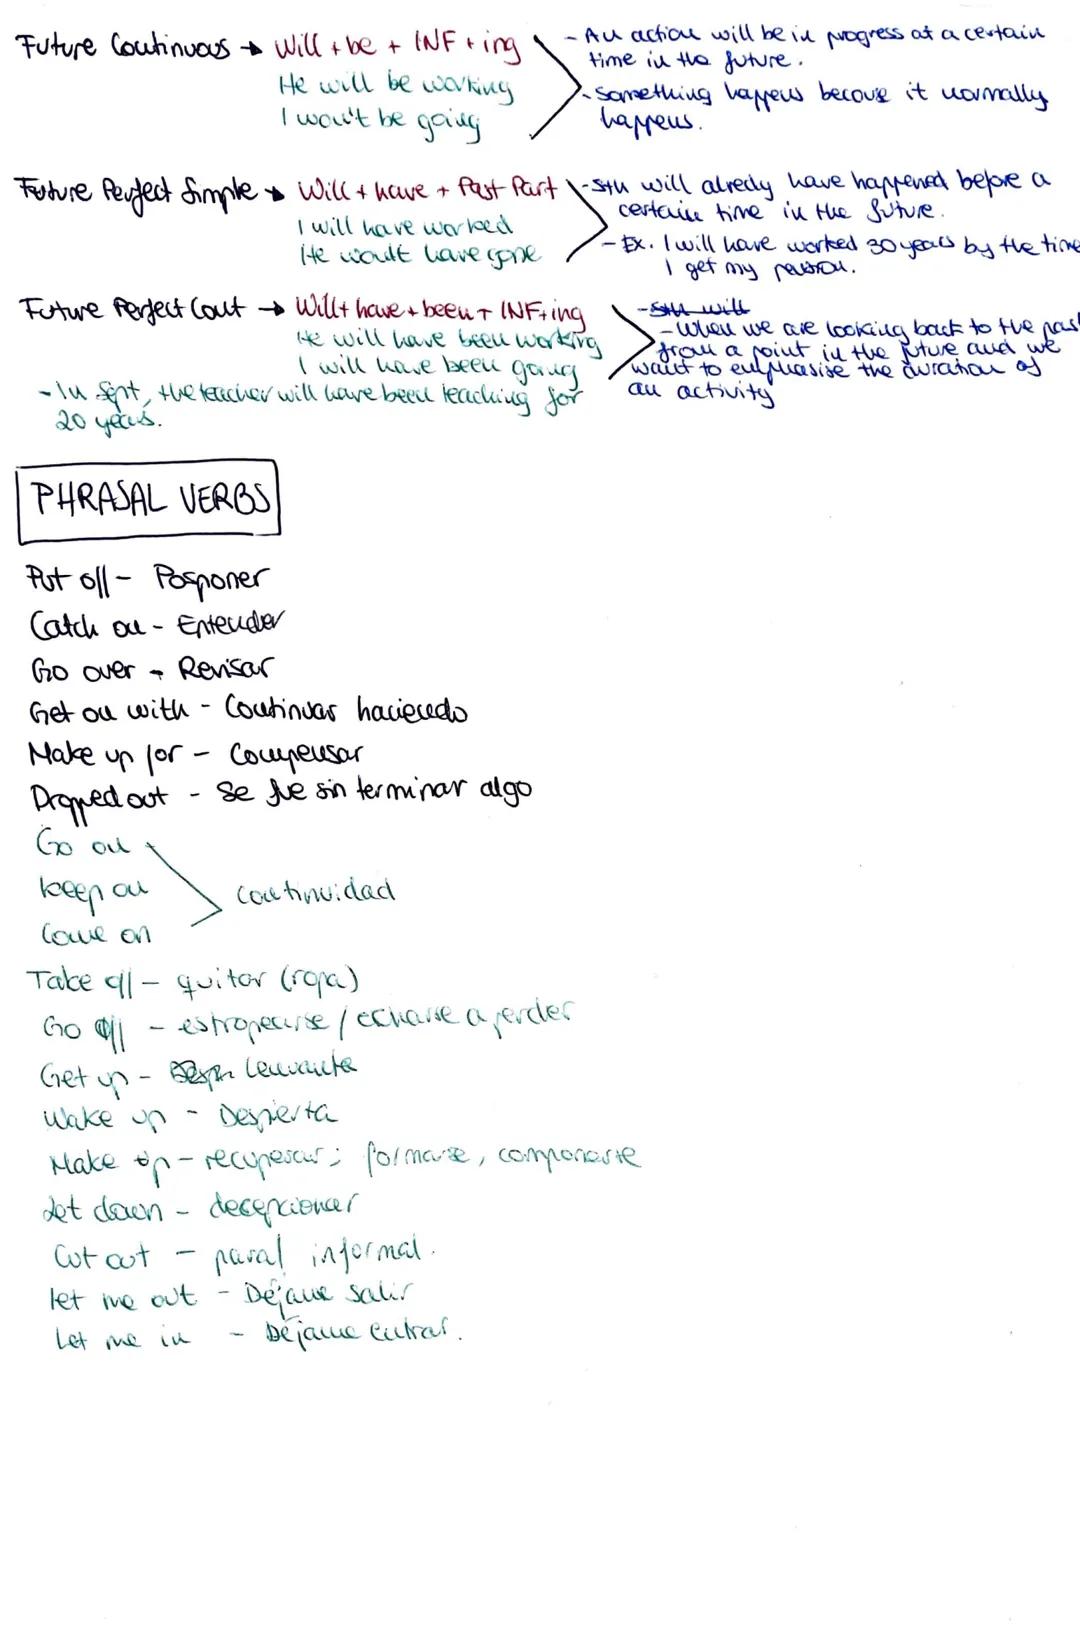 Future Continuous → Will + be + INF + ing
He will be working
I won't be going
- An action will be in progress at a certain
time in the future.
- Something happens becouse it normally
happens.
Future Perfect Simple → Will + have + Past Part
I will have worked
He wouldt have gone
- Sth will alredy have happened before a
certain time in the future.
- Ex. I will have worked 30 years by the time
I get my pension.
Future Perfect Cont → Will + have + been + INF + ing
He will have been working
I will have been going
- In Sept, the teacher will have been teaching for
20 years.
- Sth will
- When we are looking back to the past
from a point in the future and we
want to emphasise the duration of
an activity
PHRASAL VERBS
Put off - Posponer
Catch on - Entender
Go over - Revisar
Get on with - Continuar haciendo
Make up for - Compensar
Dropped out - Se fue sin terminar algo
Go on
Keep on
Come on
Continuidad
Take off - quitar (ropa)
Go off - estropearse / echarse a perder
Get up - Levanta
Wake up - Despierta
Make up - recuperar; formarse, componerse
Let down - decepcionar
Cut out - para! informal.
let me out - Déjame salir
Let me in - Déjame entrar.